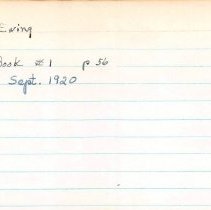 Ewing
Book #1 p 56
Sept. 1920